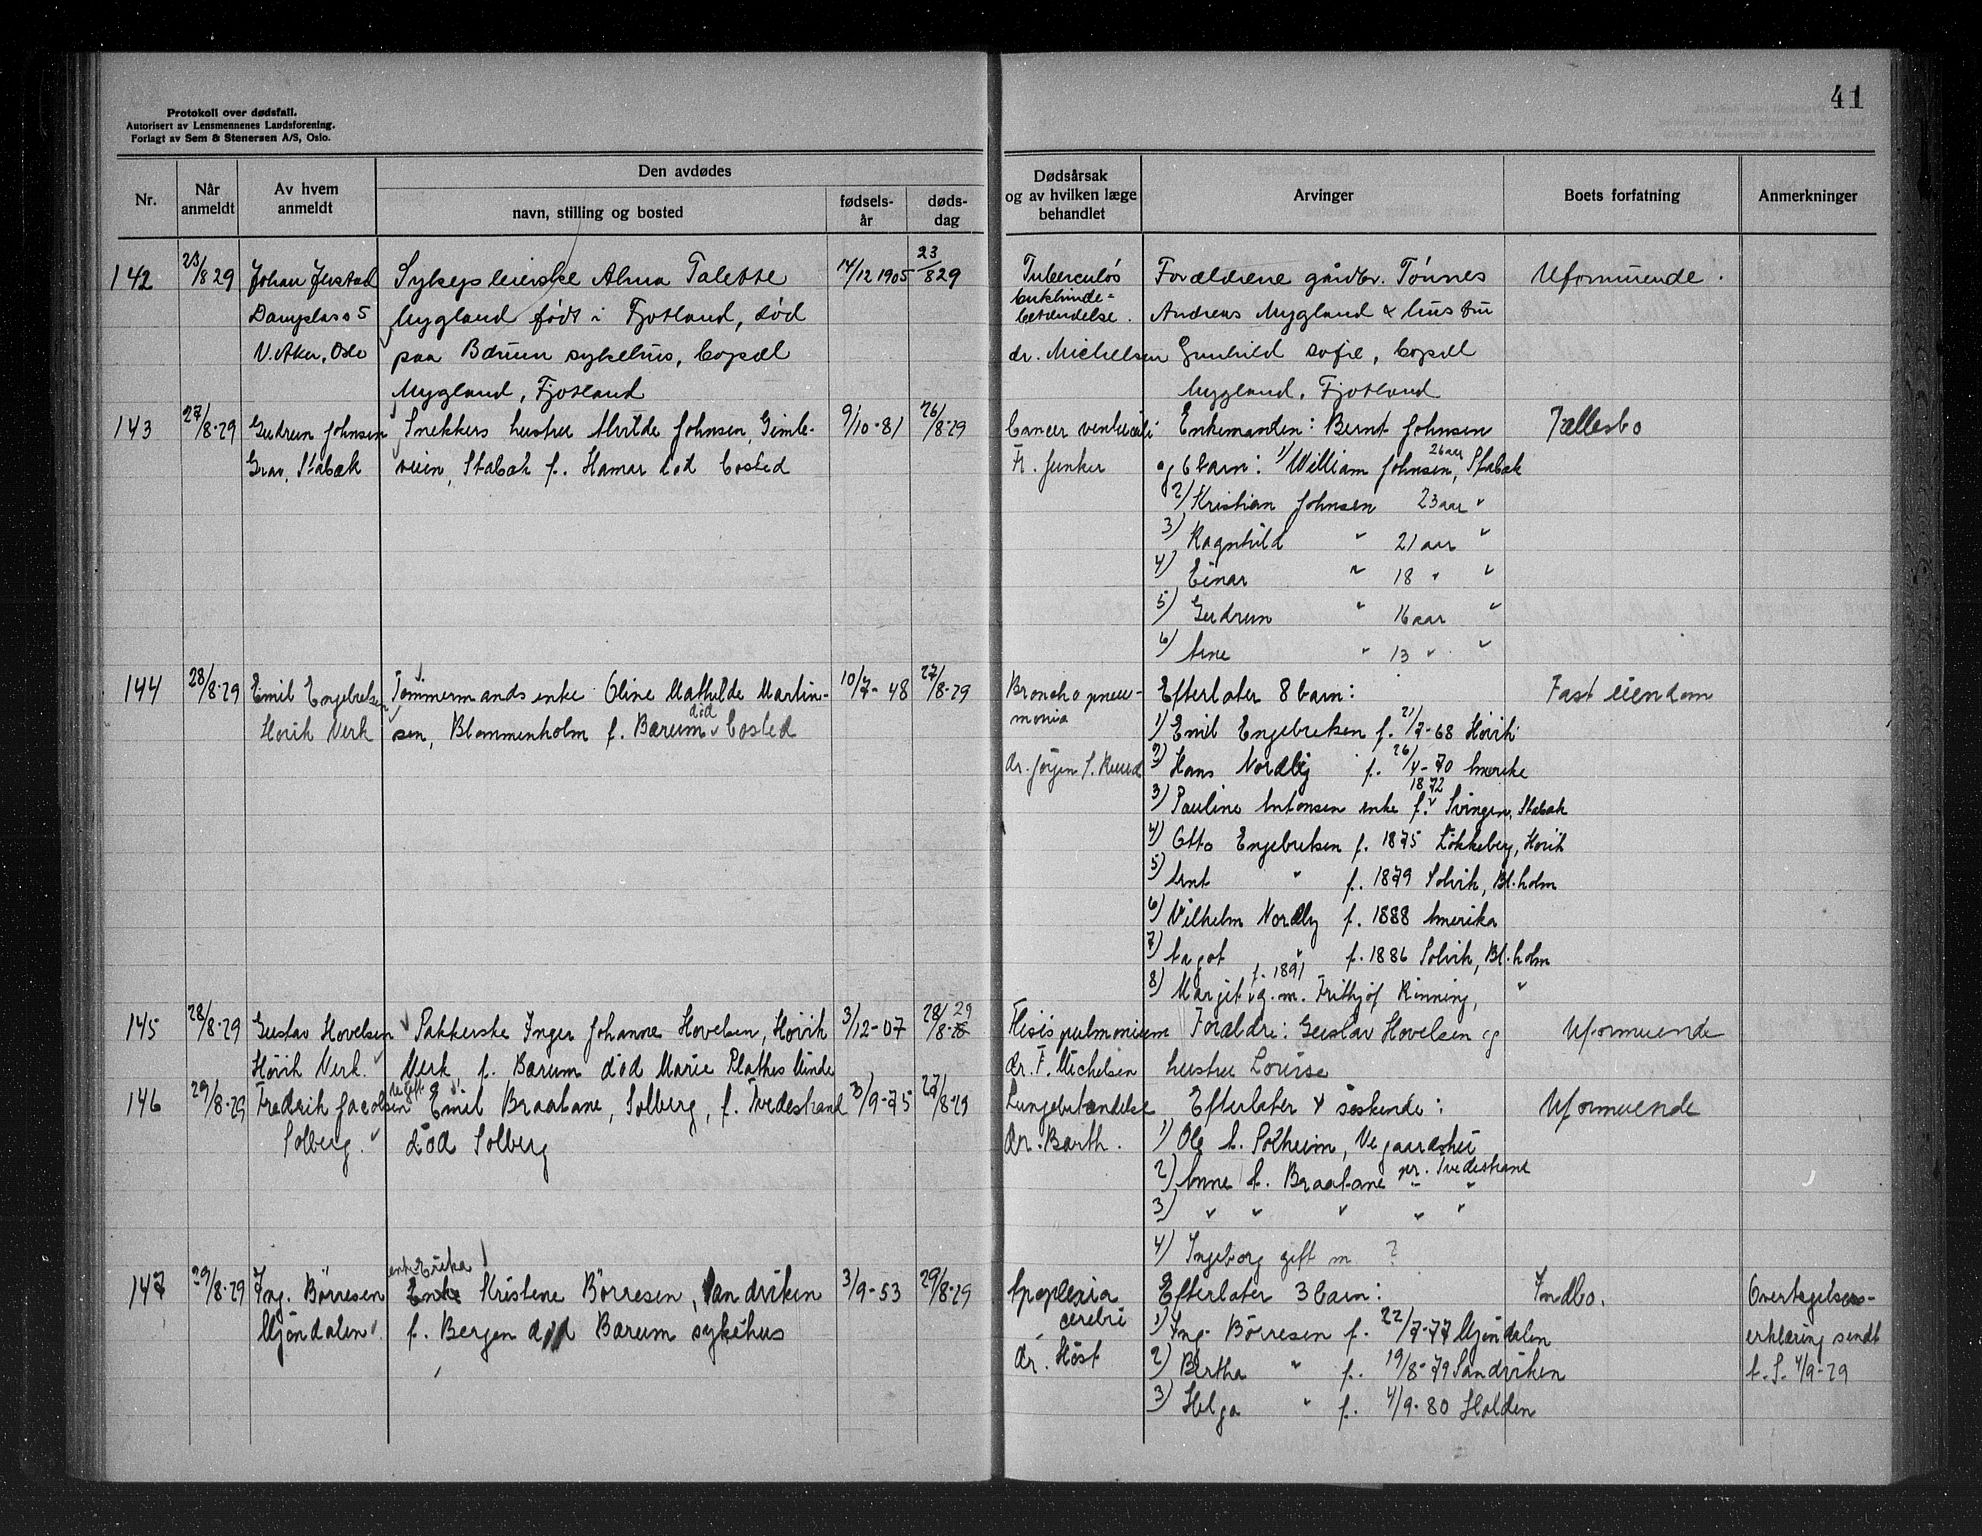 Protokoll over dødsfall.
Autorisert av Lensmennenes Landsforening.
Forlagt av Sem & Stenersen A/S, Oslo.
41
Nr.
Når anmeldt
Av hvem anmeldt
Den avdødes
navn, stilling og bosted
fødsels-år
døds-dag
Dødsårsak og av hvilken læge behandlet
Arvinger
Boets forfatning
Anmerkninger
142 23/8 29 Johan
V. Aker, Oslo
Sykepleierske Alma Talette
Mygland født i Fjotland, død
paa Bærum sykehus, bopæl
Mygland, Fjotland
14/12 1905 23/8 29
Tuberculøs
betændelse.
dr. Michelsen
Forældrene gårdbr. Tønnes
Andreas Mygland & hustru
Gunhild Sofie, bopæl
Mygland, Fjotland
Uformuende.
143 27/8-29 Gudrun Johnsen
Grav, Stabæk
Snekkers hustru Alvilde Johnsen, Gimle-
veien, Stabæk f. Hamar død bosted
9/10-81 26/8-29
Cancer ventriculi
Fr. Junker
Enkemanden: Bernt Johnsen
og 6 barn: 1) William Johnsen, 26 aar Stabæk
2) Kristian Johnsen 23 aar "
3) Ragnhild " 21 aar "
4) Einar " 18 " "
5) Gudrun " 16 aar "
6) Arne " 13 " "
Fællesbo
144 28/8-29 Emil Engebretsen
Høvik Verk
Tømmermands enke Oline Mathilde Martin-
sen, Blommenholm f. Bærum død bosted
10/7-48 27/8-29
Broncho pneu-
monia
dr. Jørgen S. Ruud
Efterlater 8 barn:
1) Emil Engebretsen f. 21/7-68 Høvik
2) Hans Nordby f. 26/4-70 Amerika
3) Pauline Antonsen enke f. 1872 Svingen, Stabæk
4) Otto Engebretsen f. 1875 Løkkeberg, Høvik
5) Arnt " f. 1879 Solvik, Bl.holm
6) Vilhelm Nordby f. 1888 Amerika
7) Aagot " f. 1886 Solvik, Bl.holm
8) Margit f. 1891 g.m. Frithjof Rinning, "
Fast eiendom
145 28/8-29 Gustav Hovelsen
Høvik Verk.
Pakkerske Inger Johanne Hovelsen, Høvik
Verk f. Bærum død Marie Plathes Minde
3/12-07 28/8-29
Ftisis pulmonum
dr. F. Michelsen
Forældre: Gustav Hovelsen og
hustru Lovise
Uformuende
146 29/8-29 Fredrik Jacobsen
Solberg.
Emil Braatane, Solberg, f. Tvedestrand
død Solberg
3/9-75 27/8-29
Lungebetændelse
dr. Barth.
Efterlater 4 søskende:
1) Ole A. Solheim, Vegaardshei
pr. Tvedestrand
2) Anne A. Braatane " "
3) " " " " "
4) Ingeborg gift m ?
Uformuende
147 29/8-29 Ing. Børresen
Mjøndalen
enke Erika
Enke Kristine Børresen, Sandviken
f. Bergen død Bærum sykehus
3/9-53 29/8-29
Apoplexia
cerebri
dr. Høst
Efterlater 3 barn:
1) Ing. Børresen f. 22/7-77 Mjøndalen
2) Bertha " f. 19/8-79 Sandviken
3) Helga " f. 4/9-80 Halden
Indbo.
Overtagelses-
erklæring sendt
t. S. 4/9-29